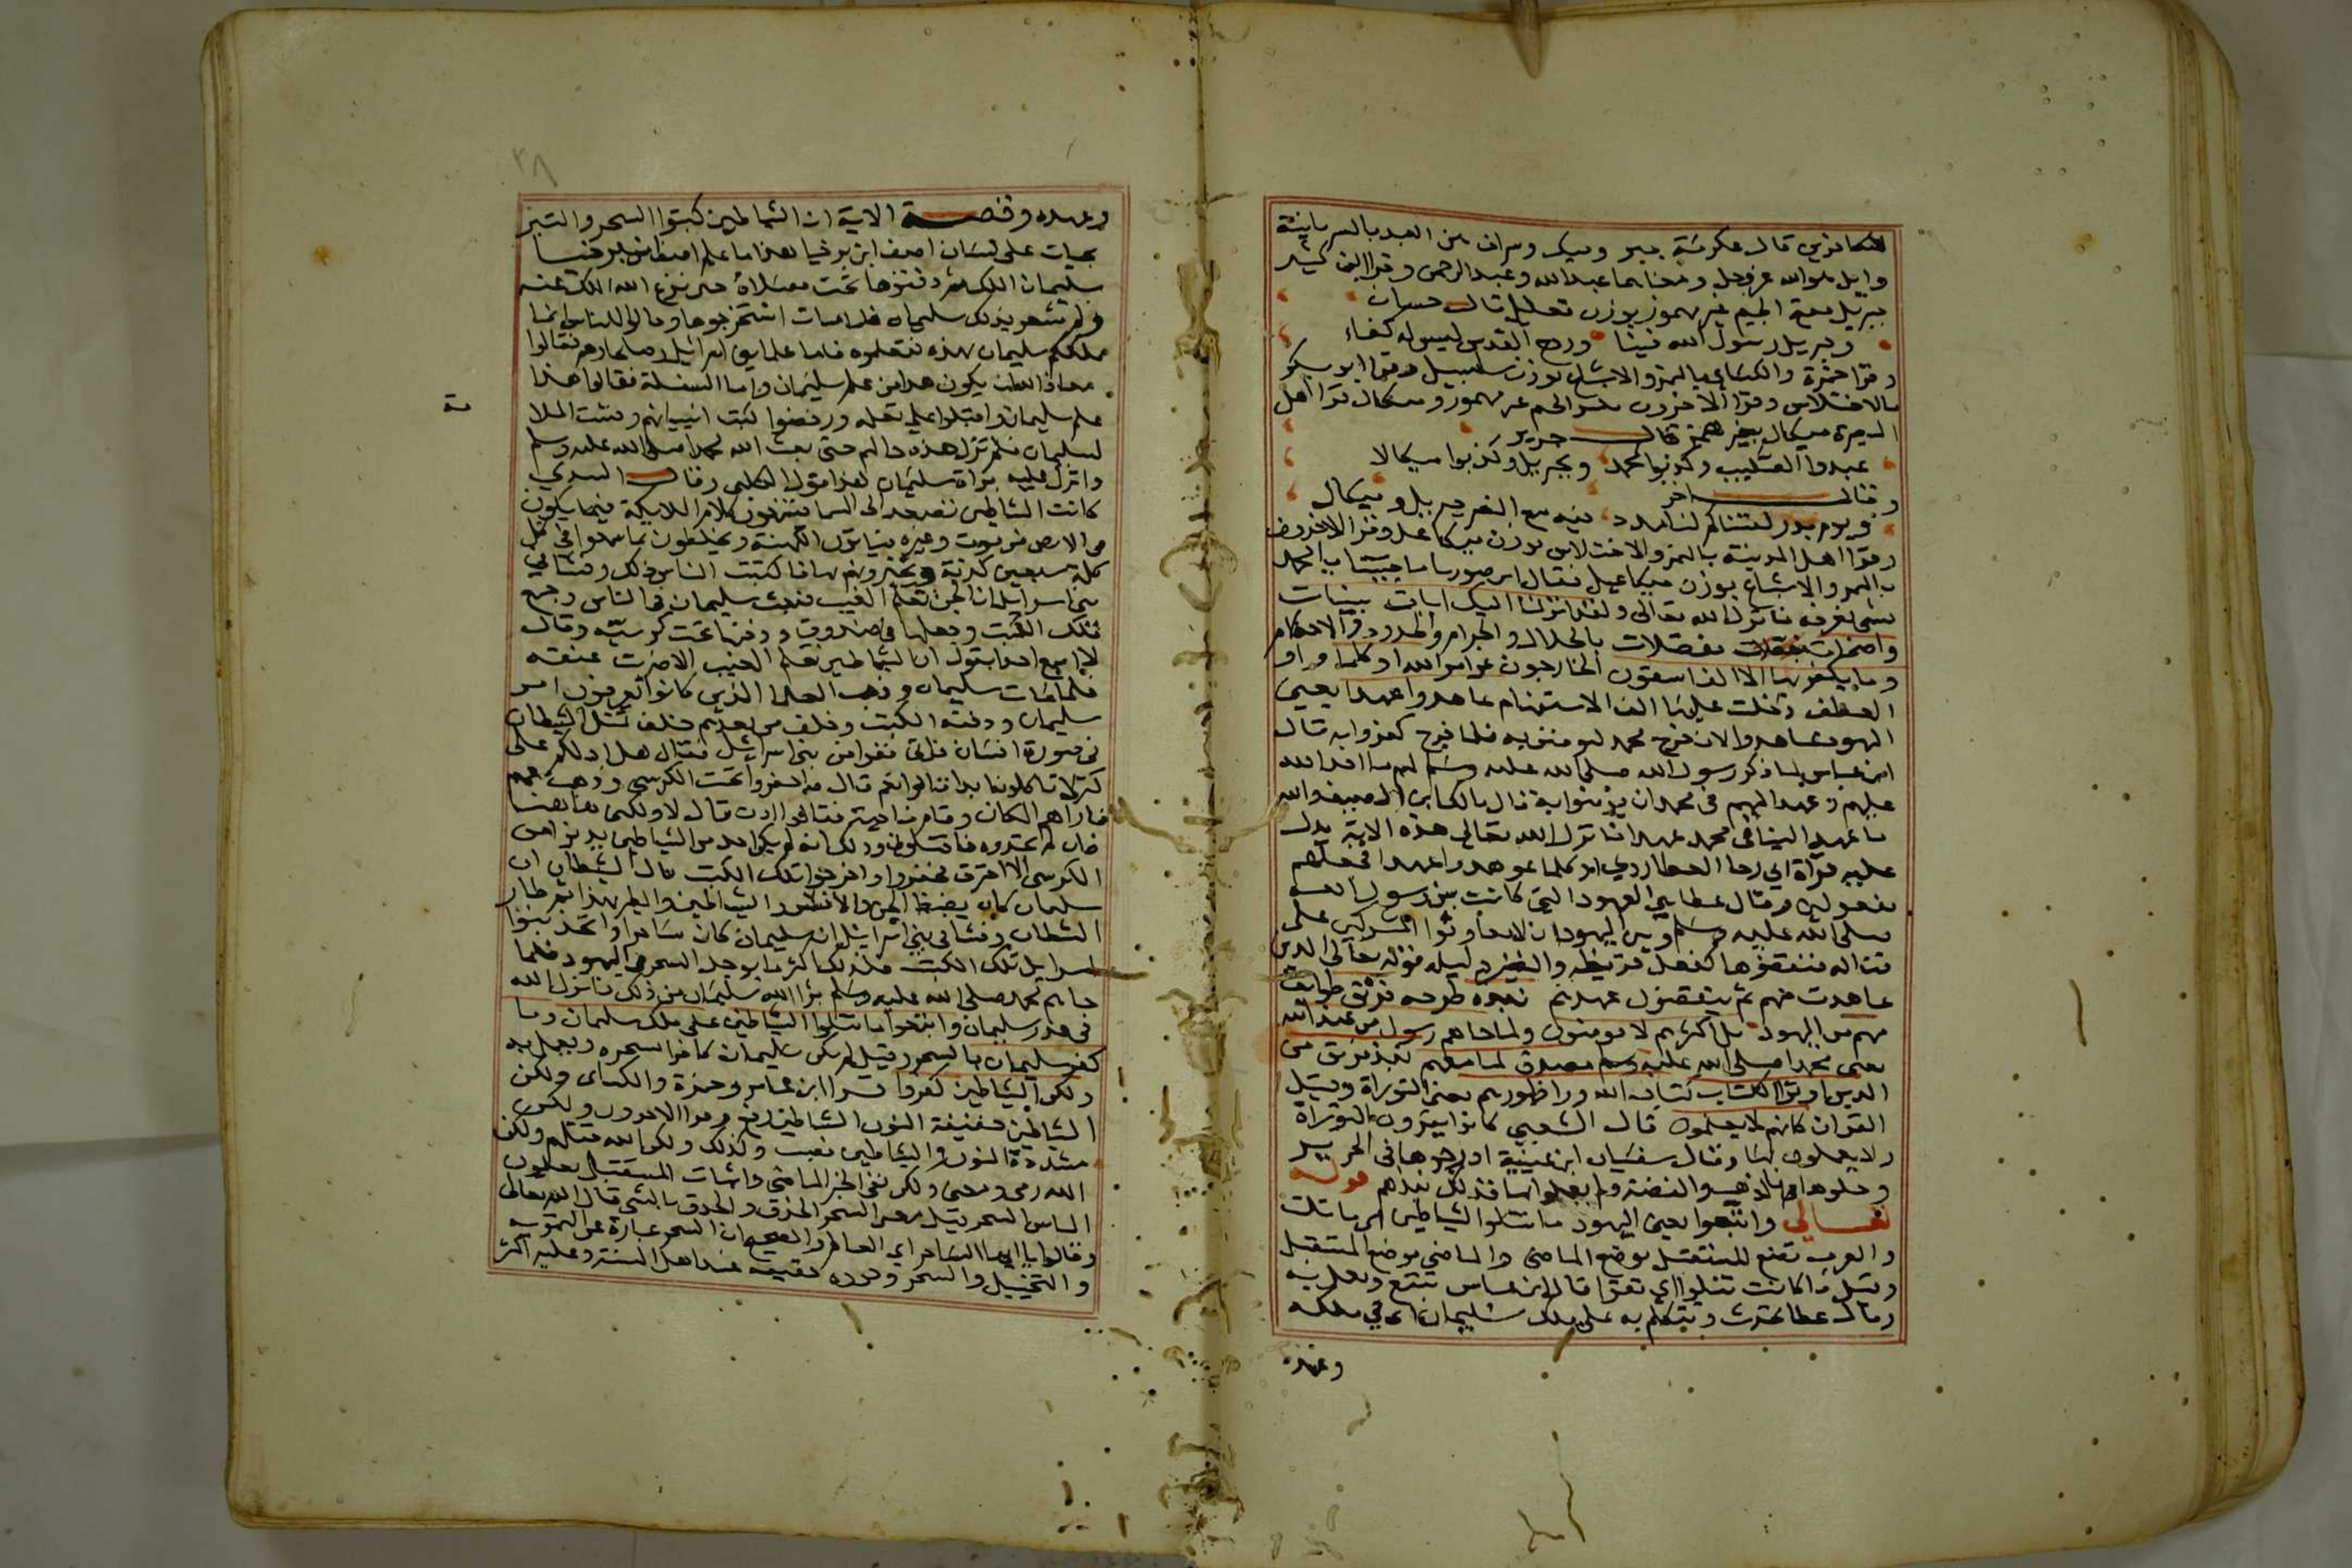 للكافرين قال عكرمة جبر وميك وسراف هن العبد بالسريانية
وايل هو الله عز وجل ومعناهما عبد الله وعبد الرحمن وقرا ابن كثير
جبريل بفتح الجيم غير مهموز بوزن فعليل قال حسان
وجبريل رسول الله فينا وروح القدس ليس له كفاء
وقرا حمزة والكسائي بالهمز والاشباع بوزن سلسبيل وقرا ابو بكر
بالاختلاس وقرا الاخرون بكسر الجيم غير مهموز وميكال قرا اهل
البصرة ميكال بغير همز قال جرير
عبدوا الصليب وكذبوا بمحمد وبجبريل وكذبوا ميكالا
وقال اخر
ويوم بدر لقيناكم لنا مدد فيه مع النصر جبريل وميكال
وقرا اهل المدينة بالهمز والاختلاس بوزن ميكاعل وقرا الاخرون
بالهمز والاشباع بوزن ميكاعيل فقال ابن صوريا ما جيتنا يا محمد
بشي نعرفه فانزل الله تعالى ولقد انزلنا اليك ايات بينات
واضحات مفصلات بالحلال والحرام والحدود والاحكام
وما يكفر بها الا الفاسقون الخارجون عن امر الله او كلما واو
العطف دخلت عليها الف الاستفهام عاهدوا عهدا يعني
اليهود عاهدوا لان خرج محمد ليومنن به فلما خرج كفروا به قال
ابن عباس لما ذكر رسول الله صلى الله عليه وسلم لهم ما اخذ الله
عليهم وعهد اليهم في محمد ان يومنوا به قال مالك ابن الصيف والله
ما عهد الينا في محمد عهد فانزل الله تعالى هذه الاية يدل
عليه قراة ابي رجا العطاردي او كلما عوهدوا عهدا فجعلهم
مفعولين وقال عطا هي العهود التي كانت بين رسول الله
صلى الله عليه وسلم وبين اليهود ان لا يعاونوا المشركين على
قتاله فنقضوها كفعل قريظة والنضير دليله قوله تعالى الذين
عاهدت منهم ثم ينقضون عهدهم نبذه طرحه فريق طوايف
منهم من اليهود بل اكثرهم لا يومنون ولما جاهم رسول من عند الله
يعني محمدا صلى الله عليه وسلم مصدق لما معهم نبذ فريق من
الذين اوتوا الكتاب كتاب الله ورا ظهورهم يعني التوراة وقيل
القران كانهم لا يعلمون قال الشعبي كانوا يقرون التوراة
ولا يعملون بها وقال سفيان ابن عيينة ادرجوها في الحرير
وحلوها بالذهب والفضة ولم يعملوا بها فذلك نبذهم قوله
تعالى واتبعوا يعني اليهود ما تتلوا الشياطين اي ما تلت
والعرب تضع المستقبل موضع الماضي والماضي موضع المستقبل
وقيل ما كانت تتلوا اي تقرا قال ابن عباس تتبع وتعمل به
وقال عطا تحدث وتتكلم به على ملك سليمان اي في ملكه
وعهده
٣٨
وعهده وقصة الاية ان الشياطين كتبوا السحر والنير
نجيات على لسان اصف ابن برخيا هذا ما علم اصف ابن برخيا
سليمان الملك ثم دفنوها تحت مصلاه حين نزع الله الملك عنه
ولم يشعر بذلك سليمان فلما مات استخرجوها وقالوا للناس انما
ملككم سليمان بهذه فتعلموه فاما علما بني اسرائيل وصلحاوهم فقالوا
معاذ الله ان يكون هذا من علم سليمان واما السفلة فقالوا هذا
علم سليمان واقبلوا على تعلمه ورفضوا كتب انبيائهم وفشت الملا
مة
لسليمان فلم تزل هذه حالهم حتى بعث الله محمدا صلى الله عليه وسلم
وانزل عليه براة سليمان هذا قول الكلبي وقال السدي
كانت الشياطين تصعد الى السما فيسترقون كلام الملايكة فيما يكون
في الارض من موت وغيره فياتون الكهنة ويخلطون بما سمعوا في كل
كلمة سبعين كذبة ويخبرونهم بها فاكتتبت الناس ذلك وفشا في
بني اسرايل ان الجن تعلم الغيب فبعث سليمان في الناس وجمع
تلك الكتب وجعلها في صندوق ودفنها تحت كرسيه وقال
لا اسمع احدا يقول ان الشياطين تعلم الغيب الا ضربت عنقه
فلما مات سليمان وذهب العلما الذين كانوا يعرفون امر
سليمان ودفنه الكتب وخلف من بعدهم خلف تمثل الشيطان
في صورة انسان فاتى نفرا من بني اسرائيل فقال هل ادلكم على
كنز لا تاكلونه ابدا قالوا نعم قال فاحفروا تحت الكرسي وذهب معهم
فاراهم المكان وقام ناحية فقالوا ادن قال لا ولكني هاهنا
فان لم تجدوه فاقتلوني وذلك انه لم يكن احد من الشياطين يدنوا من
الكرسي الا احترق فحفروا واخرجوا تلك الكتب قال الشيطان ان
سليمان كان يضبط الجن والانس والشياطين والطير بهذا ثم طار
الشيطان وفشا في بني اسرائيل ان سليمان كان ساحرا واتخذ بنوا
اسرايل تلك الكتب فلذلك اكثر ما يوجد السحر في اليهود فلما
جا هم محمد صلى الله عليه وسلم برا الله سليمان من ذلك فانزل الله
في عذر سليمان واتبعوا ما تتلوا الشياطين على ملك سليمان وما
كفر سليمان بالسحر وقيل لم يكن سليمان كافرا يسحر ويعمل به
ولكن الشياطين كفروا قرا ابن عباس وحمزة والكسائي ولكن
الشياطين خفيفة النون الشياطين رفع وقرا الاخرون ولكن
مشددة النون والشياطين نصب وكذلك ولكن الله قتلهم ولكن
الله رمى ومعنى ولكن نفي الخبر الماضي واثبات المستقبل يعلمون
الناس السحر قيل معنى السحر الحذق والحذق بالشي قال الله تعالى
وقالوا يا ايها الساحر اي العالم والصحيح ان السحر عبارة عن التمويه
والتخييل والسحر وجوده حقيقة عند اهل السنة وعليه اكثر